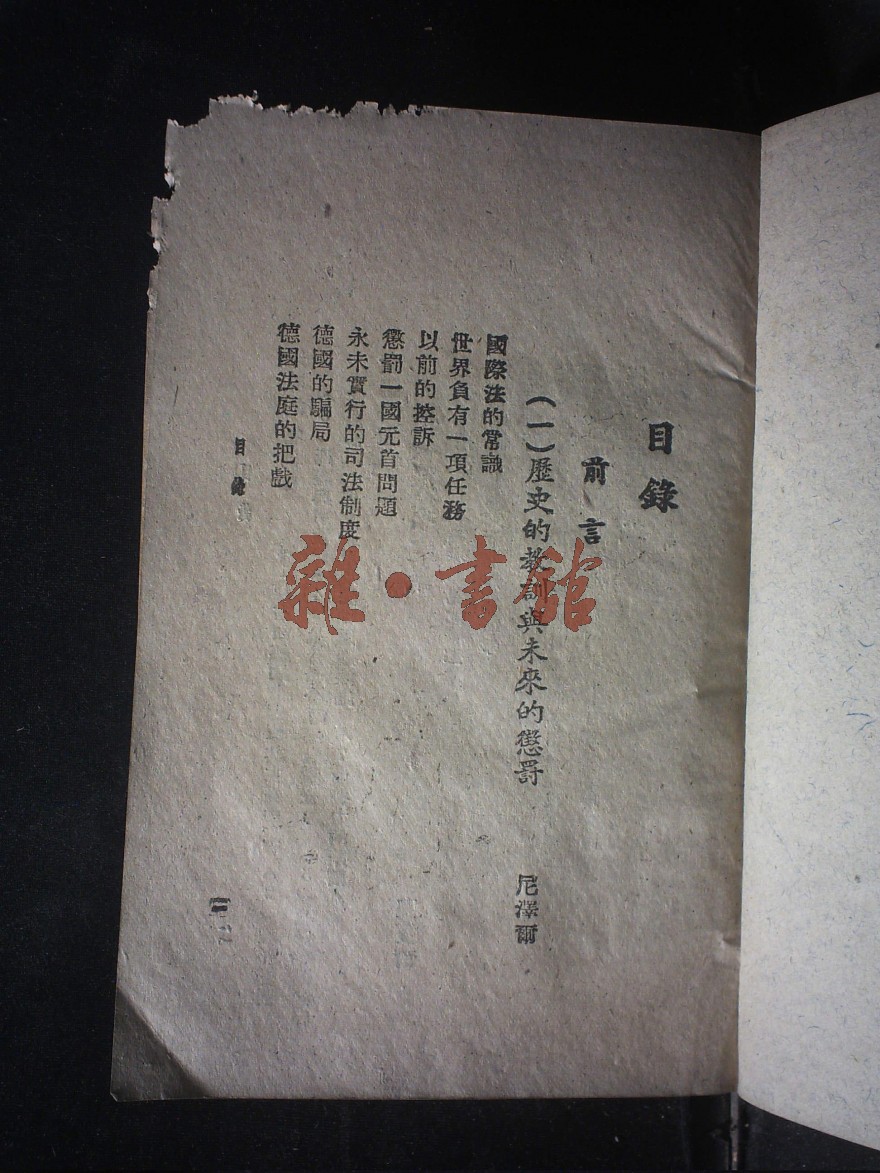 目錄
前言
(一)歷史的教訓與未來的懲罸 尼澤爾
國際法的常識
世界負有一項任務
以前的控訴
懲罰一國元首問題
永未實行的司法制度
德國的騙局
德國法庭的把戲
目錄
雜·書館